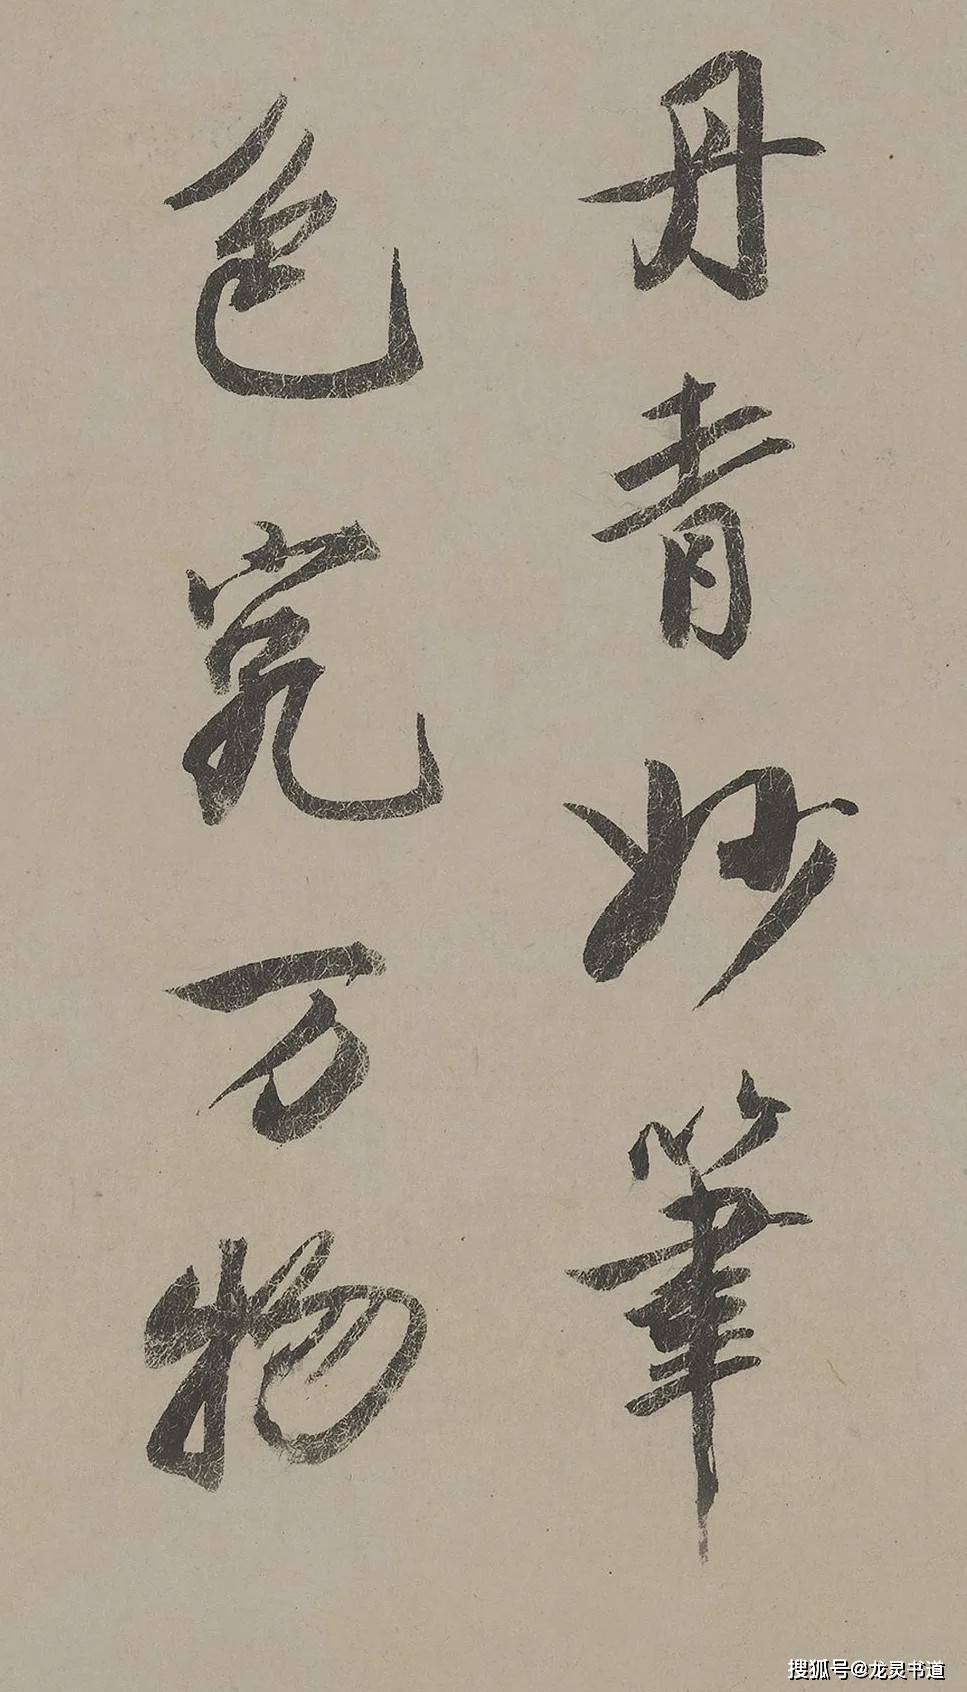 丹青妙筆
色究万物
搜狐号@龙灵书道